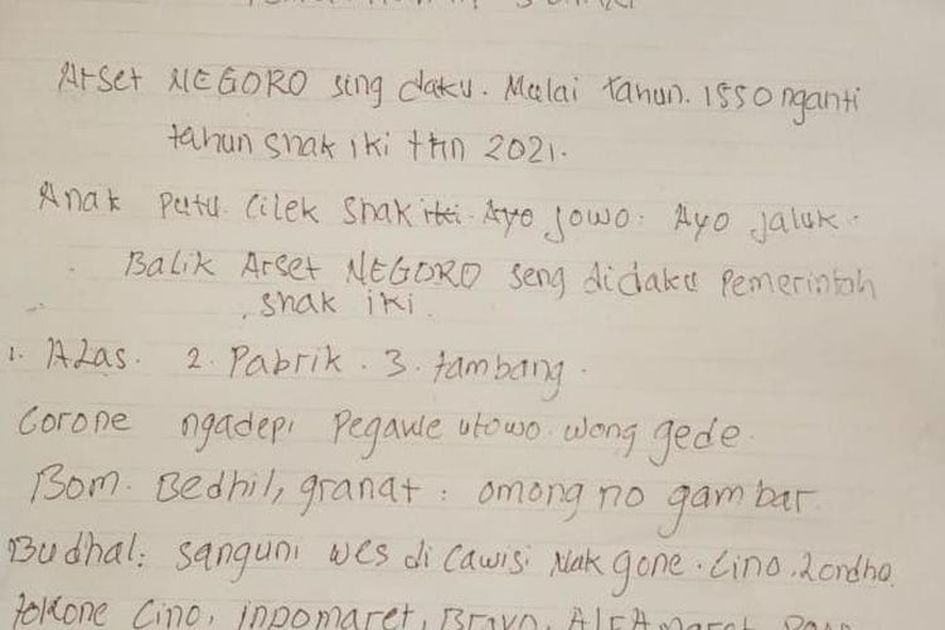 Arset NEGORO sing daku. Mulai tahun. 1550 nganti
tahun snak iki thn 2021.
Anak putu. Cilek snak iki. Ayo Jowo. Ayo jaluk.
Balik Arset NEGORO seng didaku Pemerintah
snak iki.
1. Alas. 2. Pabrik. 3. tambang.
Corone ngadepi Pegawe utowo. wong gede.
Bom. Bedhil, granat: omong no gambar.
Budhal: sanguni wes di Cawisi Nak gone. Cino. Londho.
tokone Cino, inpomaret, Bravo, AlFAmaret